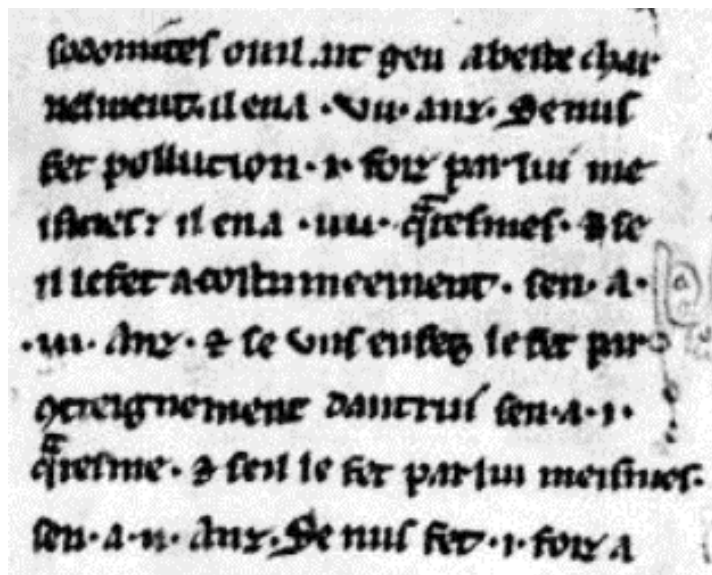 sodomites ou il ait geu a beste char
nelment. il en a .vii. anz. Se nus
fet pollution .i. foiz par lui me
ismes. il en a .iiii. q̃resmes. ⁊ se
il le fet acostumeement. sen. a.
.iii. anz. ⁊ se uns enfes le fet par
ꝯtreignement dautrui sen .a. i.
q̃resme. ⁊ seil le fet par lui meismes.
sen. a .ii. anz. Se nus fet .i. foiz a